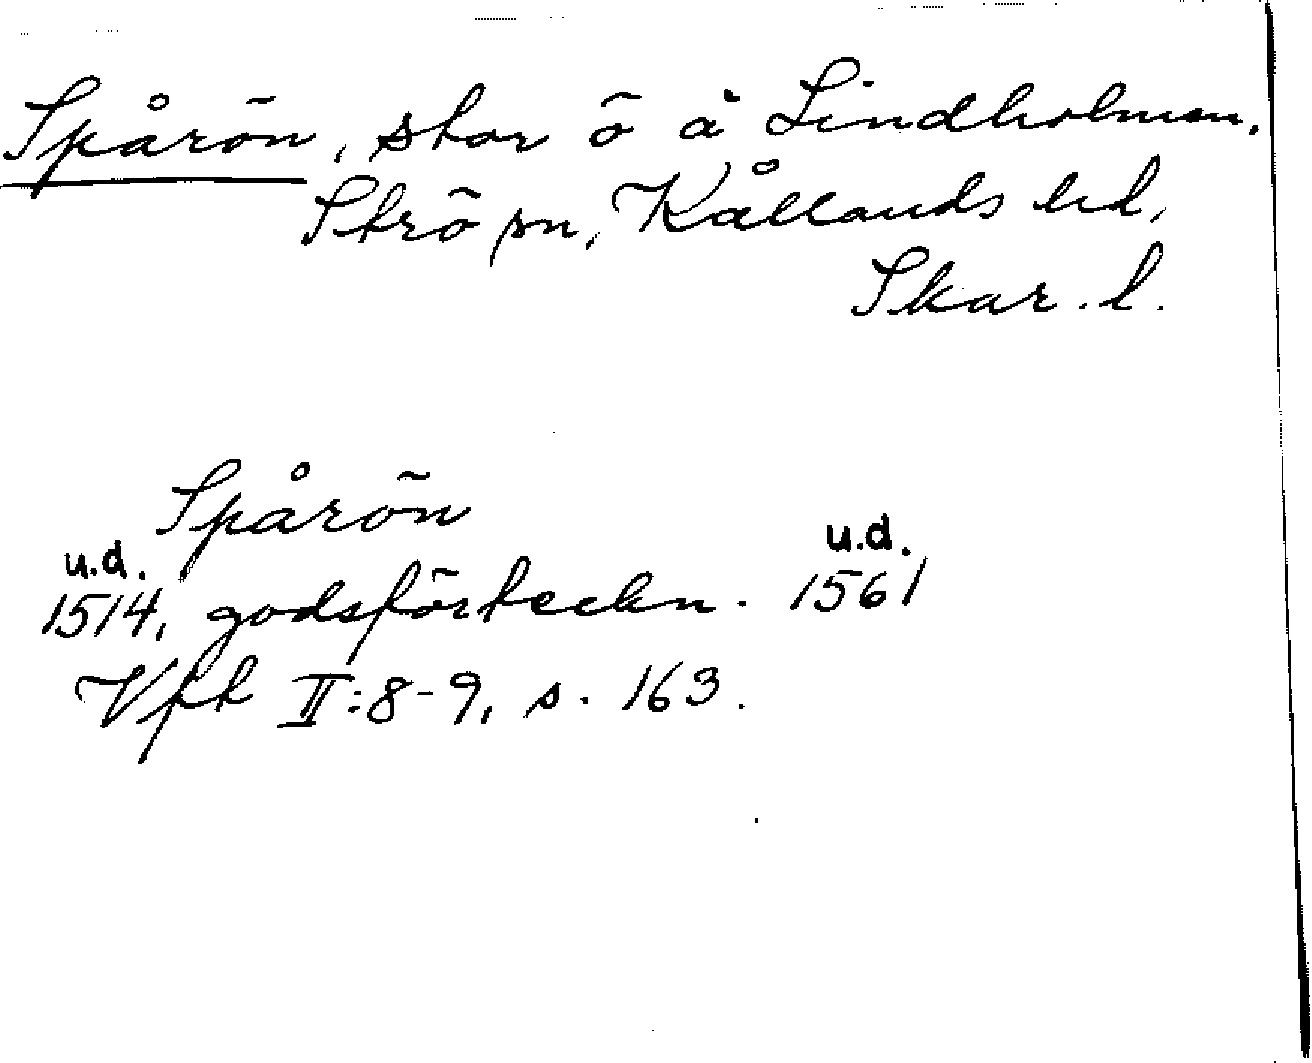 Spårön, stor ö å Lindholmen.
Strö sn, Kållands hd,
Skar. l.
Spårön
u.d. u.d.
1514, godsförteckn. 1561
Vft II:8-9, s. 163.